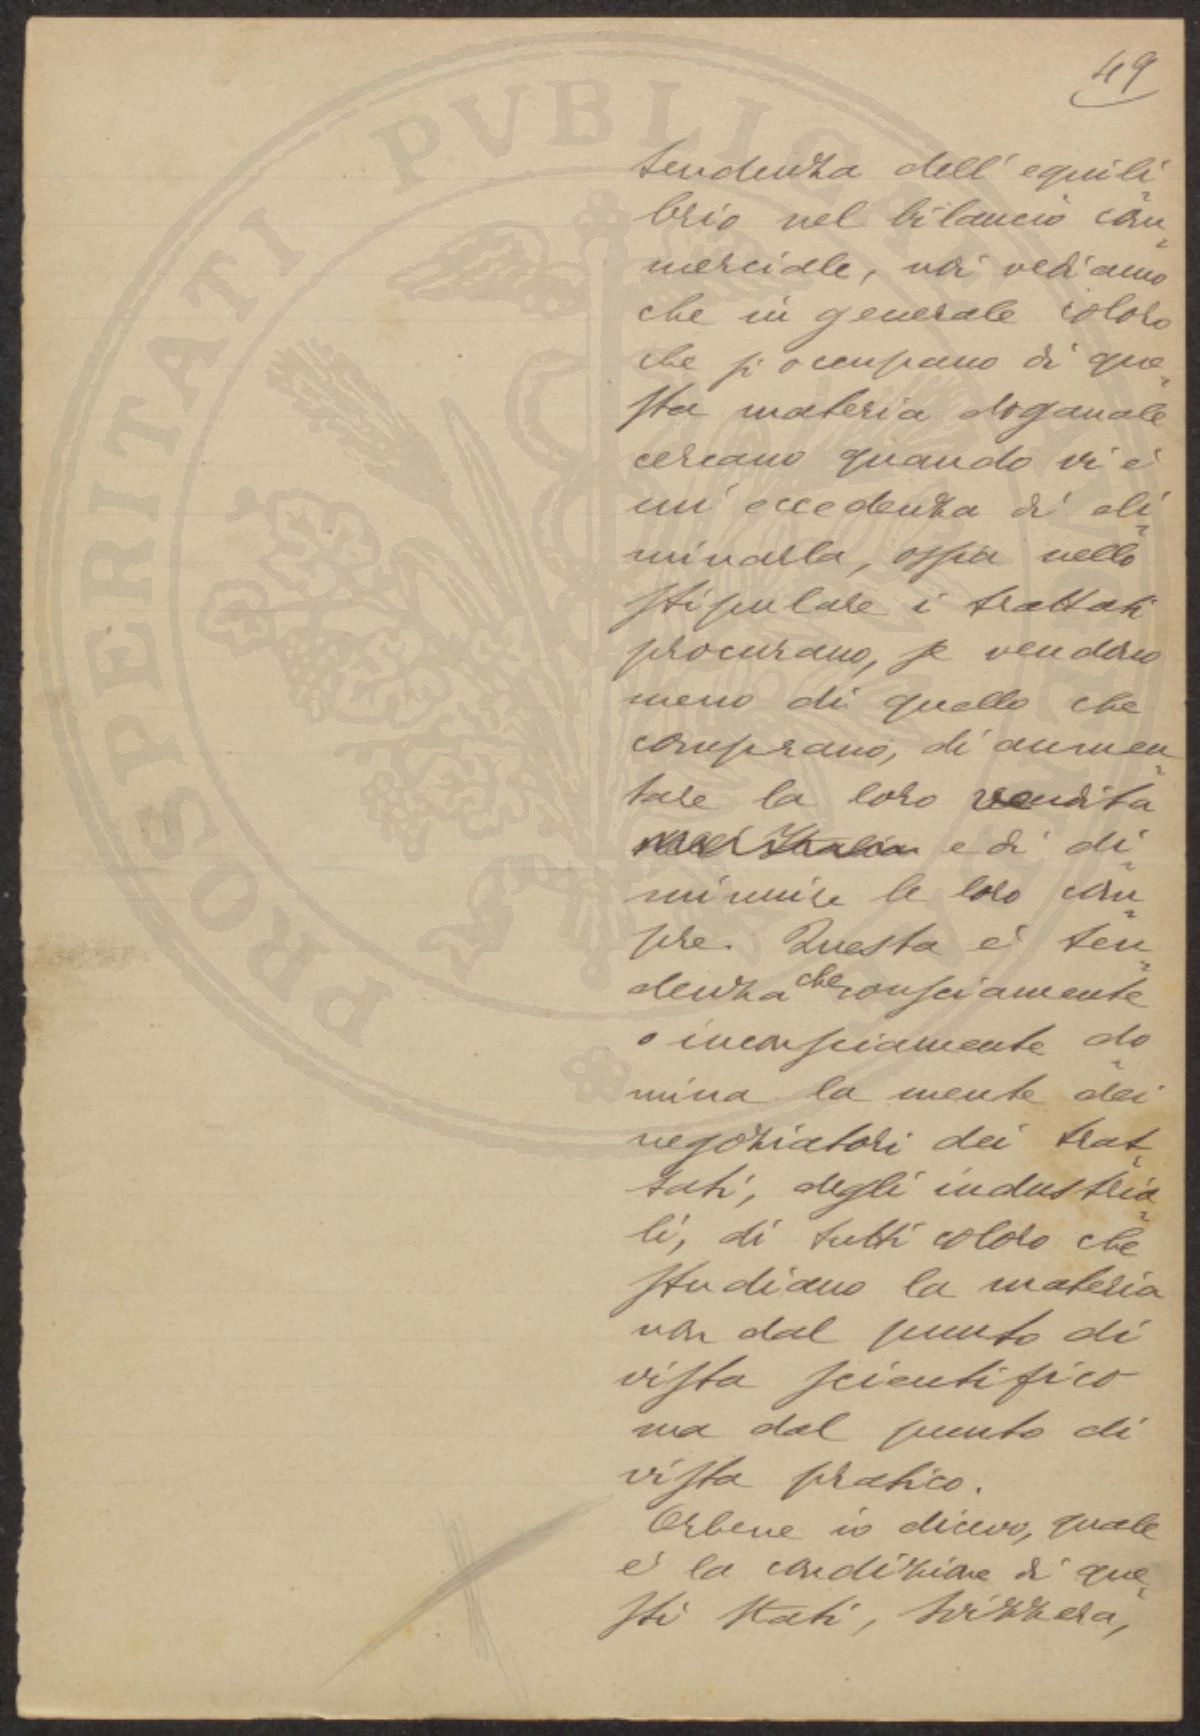 49
tendenza dell'equili-
brio nel bilancio com-
merciale, noi vediamo
che in generale coloro
che si occupano di que-
sta materia doganale
cercano quando vi è
un'eccedenza di eli-
minarla, ossia nello
stipulare i trattati
procurano, se vendono
meno di quello che
comprano, di aumen-
tare la loro vendita
e di di-
minuire le loro com-
pre. Questa è ten-
denza che consciamente
o inconsciamente do-
mina la mente dei
negoziatori dei trat-
tati, degli industria-
li, di tutti coloro che
studiano la materia
non dal punto di
vista scientifico
ma dal punto di
vista pratico.
Orbene io dicevo, quale
è la condizione di que-
sti Stati, Svizzera,
PROSPERITATI PVBLICAE